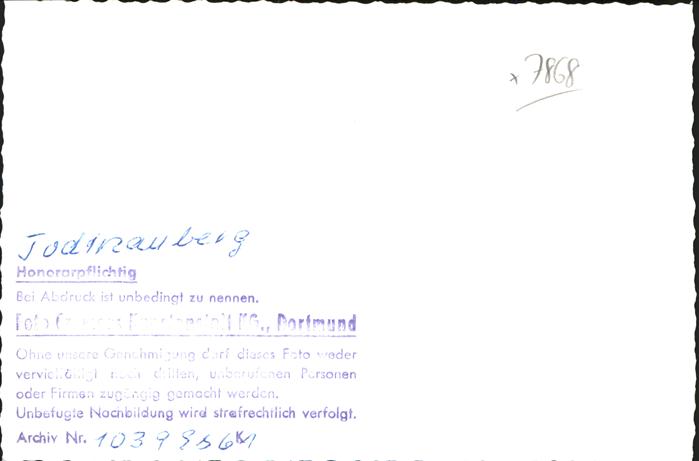 x 7868
Todtnauberg
Honorarpflichtig
Bei Abdruck ist unbedingt zu nennen.
Foto Kunstanstalt KG., Dortmund
Ohne unsere Genehmigung darf dieses Foto weder
vervielfältigt noch dritten, unberufenen Personen
oder Firmen zugängig gemacht werden.
Unbefugte Nachbildung wird strafrechtlich verfolgt.
Archiv Nr.